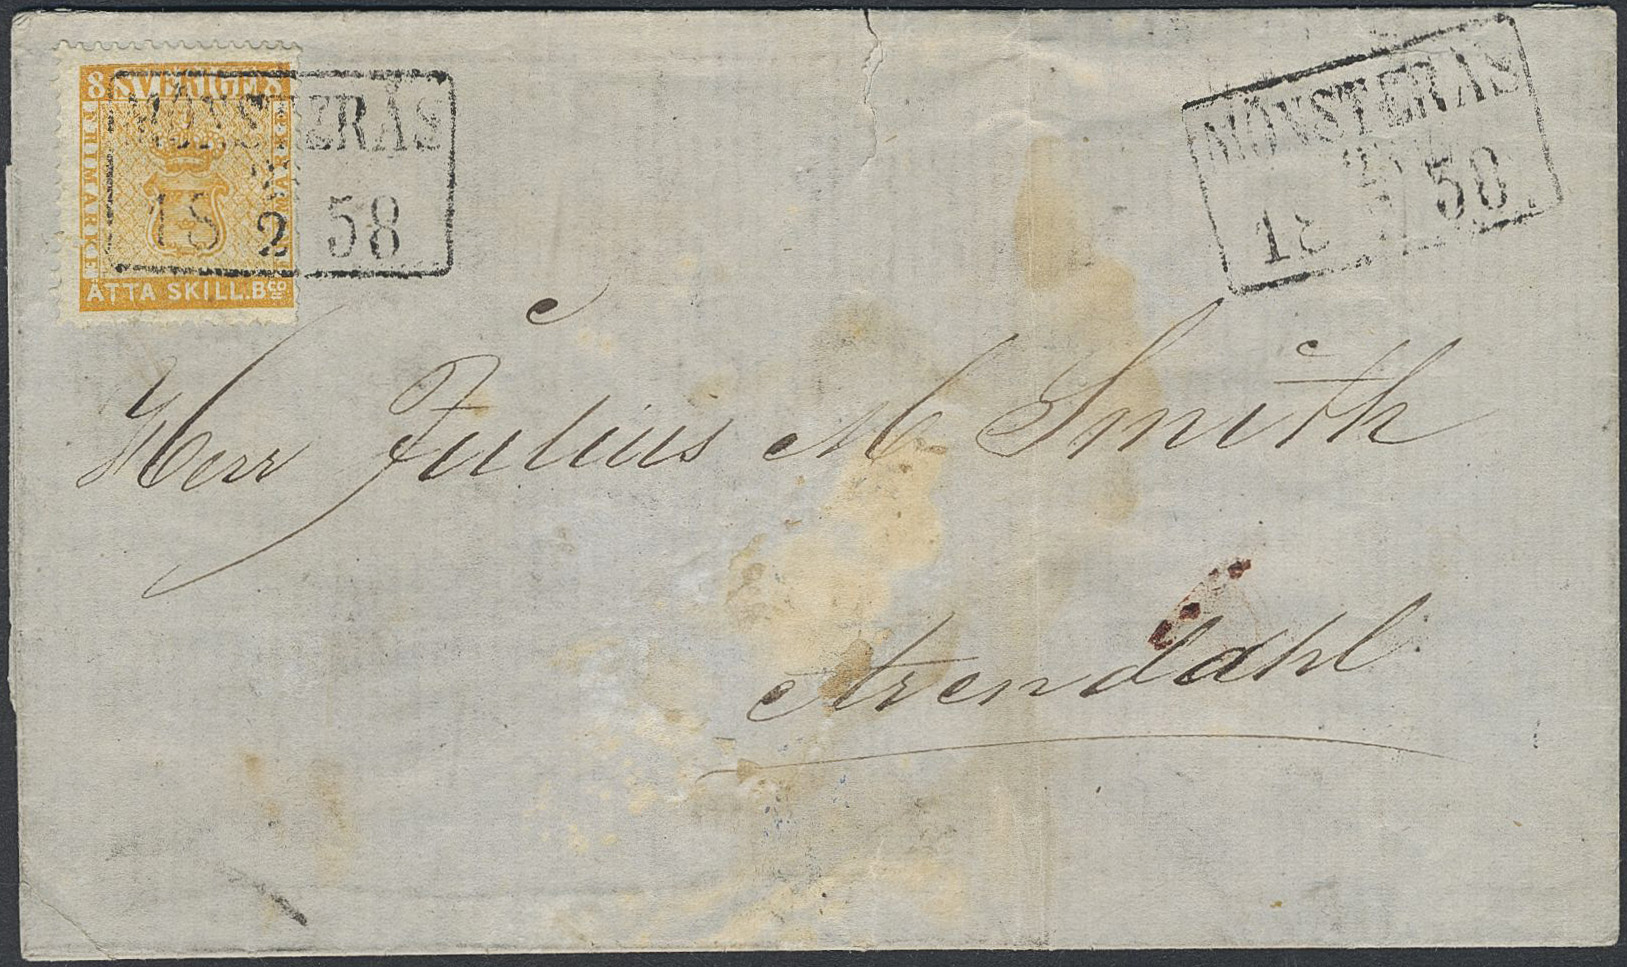 8 SVERIGE 8
FRIMÄRKE
ÅTTA SKILL. Bco
MÖNSTERÅS
2
18 58
MÖNSTERÅS
18
Herr Julius M Smith
Arendahl